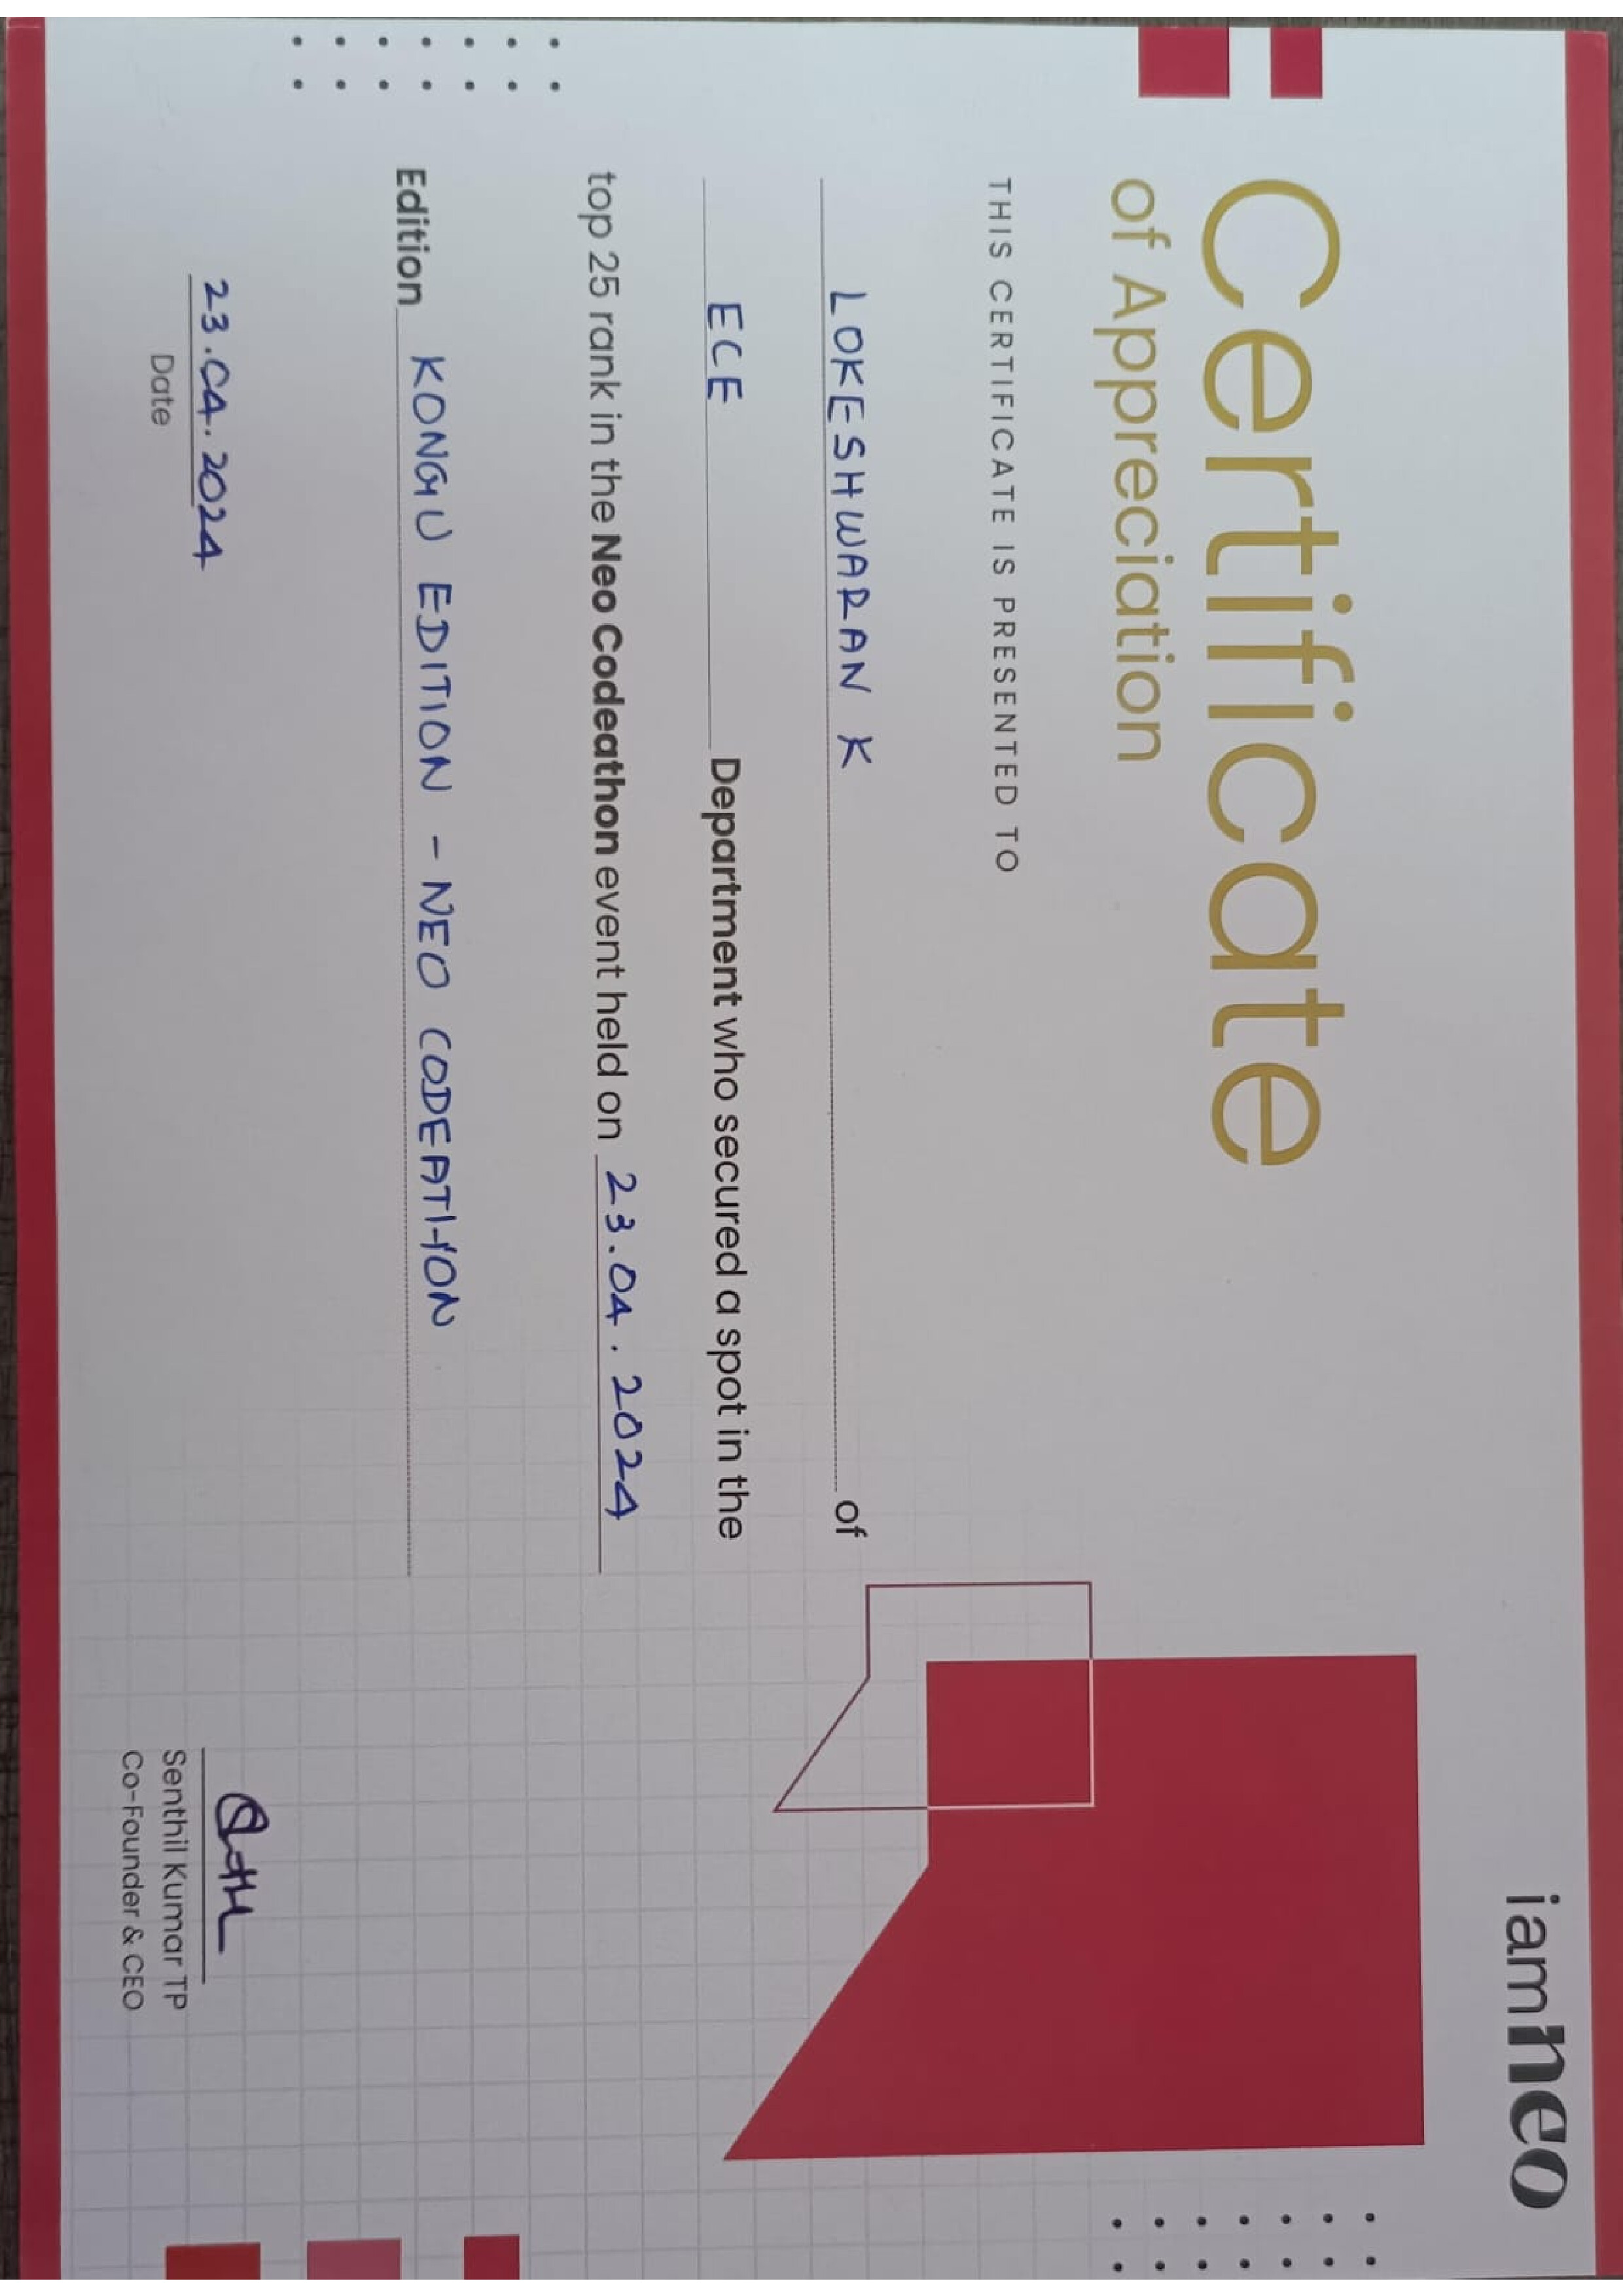 iamneo
Certificate
of Appreciation
THIS CERTIFICATE IS PRESENTED TO
LOKESHWARAN K of
ECE Department who secured a spot in the
top 25 rank in the Neo Codeathon event held on 23.04.2024
Edition KONGU EDITION - NEO CODEATHON
23.04.2024
Date
Senthil Kumar TP
Co-Founder & CEO